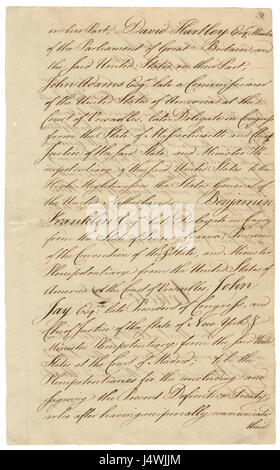 on his Part, David Hartley Esqr., Member
of the Parliament of Great Britain, and
the said United States on their Part,
John Adams Esqr., late a Commissioner of
the United States of America at the
Court of Versailles, late Delegate in Congress
from the State of Massachusetts and Chief
Justice of the said State, and Minister
Plenipotentiary of the said United States to
High Mightinesses the States General of
the United Netherlands. Benjamin
Franklin Esqr. late Delegate in Congress
from the State of Pennsylvania, President
of the Convention of the sd. State, and Minister
Plenipotentiary from the United States of
America at the Court of Versailles. John
Jay Esqr. late President of Congress, and
Chief Justice of the State of New York &
Minister Plenipotentiary from the said United
States at the Court of Madrid; to be
Plenipotentiaries for the concluding and
signing the Present Definitive Treaty;
who after having reciprocally communicated
their
alamy
J4WJJM